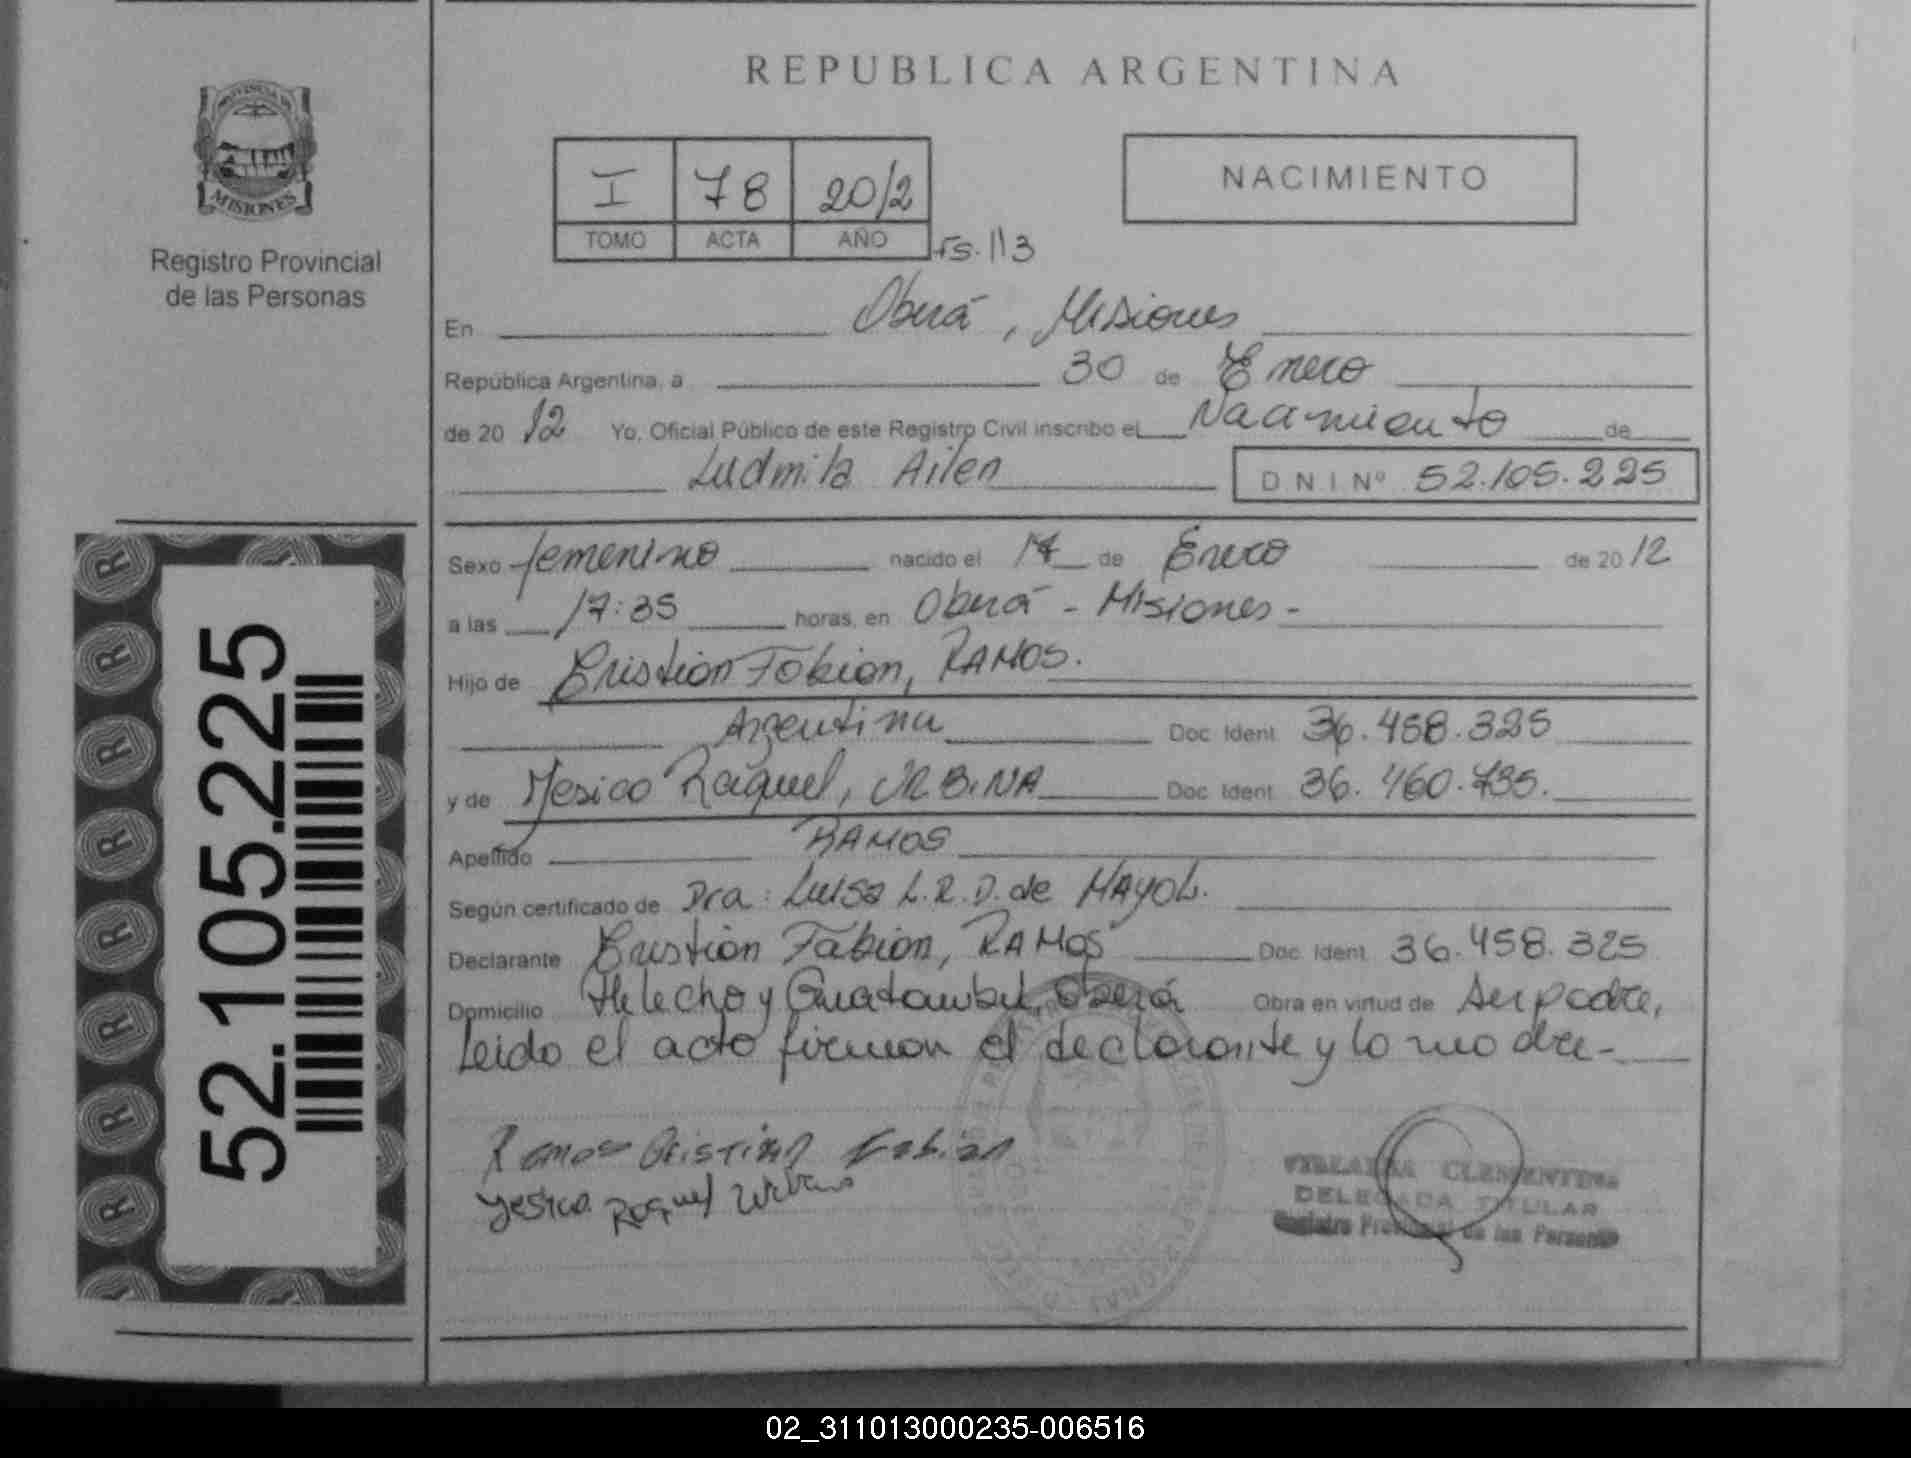 REPUBLICA ARGENTINA
PROVINCIA DE
MISIONES
Registro Provincial
de las Personas
I 78 20/2
TOMO ACTA AÑO
Fs. 113
NACIMIENTO
En Oberá, Misiones
República Argentina, a 30 de Enero
de 20 12 Yo, Oficial Público de este Registro Civil inscribo el Nacimiento de
Ludmila Ailen DNI Nº 52.105.225
Sexo femenino nacido el 14 de Enero de 20 12
a las 17:35 horas, en Oberá - Misiones -
Hijo de Cristian Fabian, RAMOS.
Argentina Doc Ident 36.458.325
y de Yesica Raquel, URBINA Doc Ident 36.460.735.
Apellido RAMOS
Según certificado de Dra: Luisa L.R.D. de MAYOL.
Declarante Cristian Fabian, RAMOS Doc Ident 36.458.325
Domicilio Helecho y Guatambú, Oberá Obra en virtud de ser padre,
Leido el acta firman el declarante y la madre -
Ramos Cristian Fabian
Yesica Raquel Urbina
CLEMENTINA
DELEGADA TITULAR
Registro Provincial de las Personas
52.105.225
02_311013000235-006516